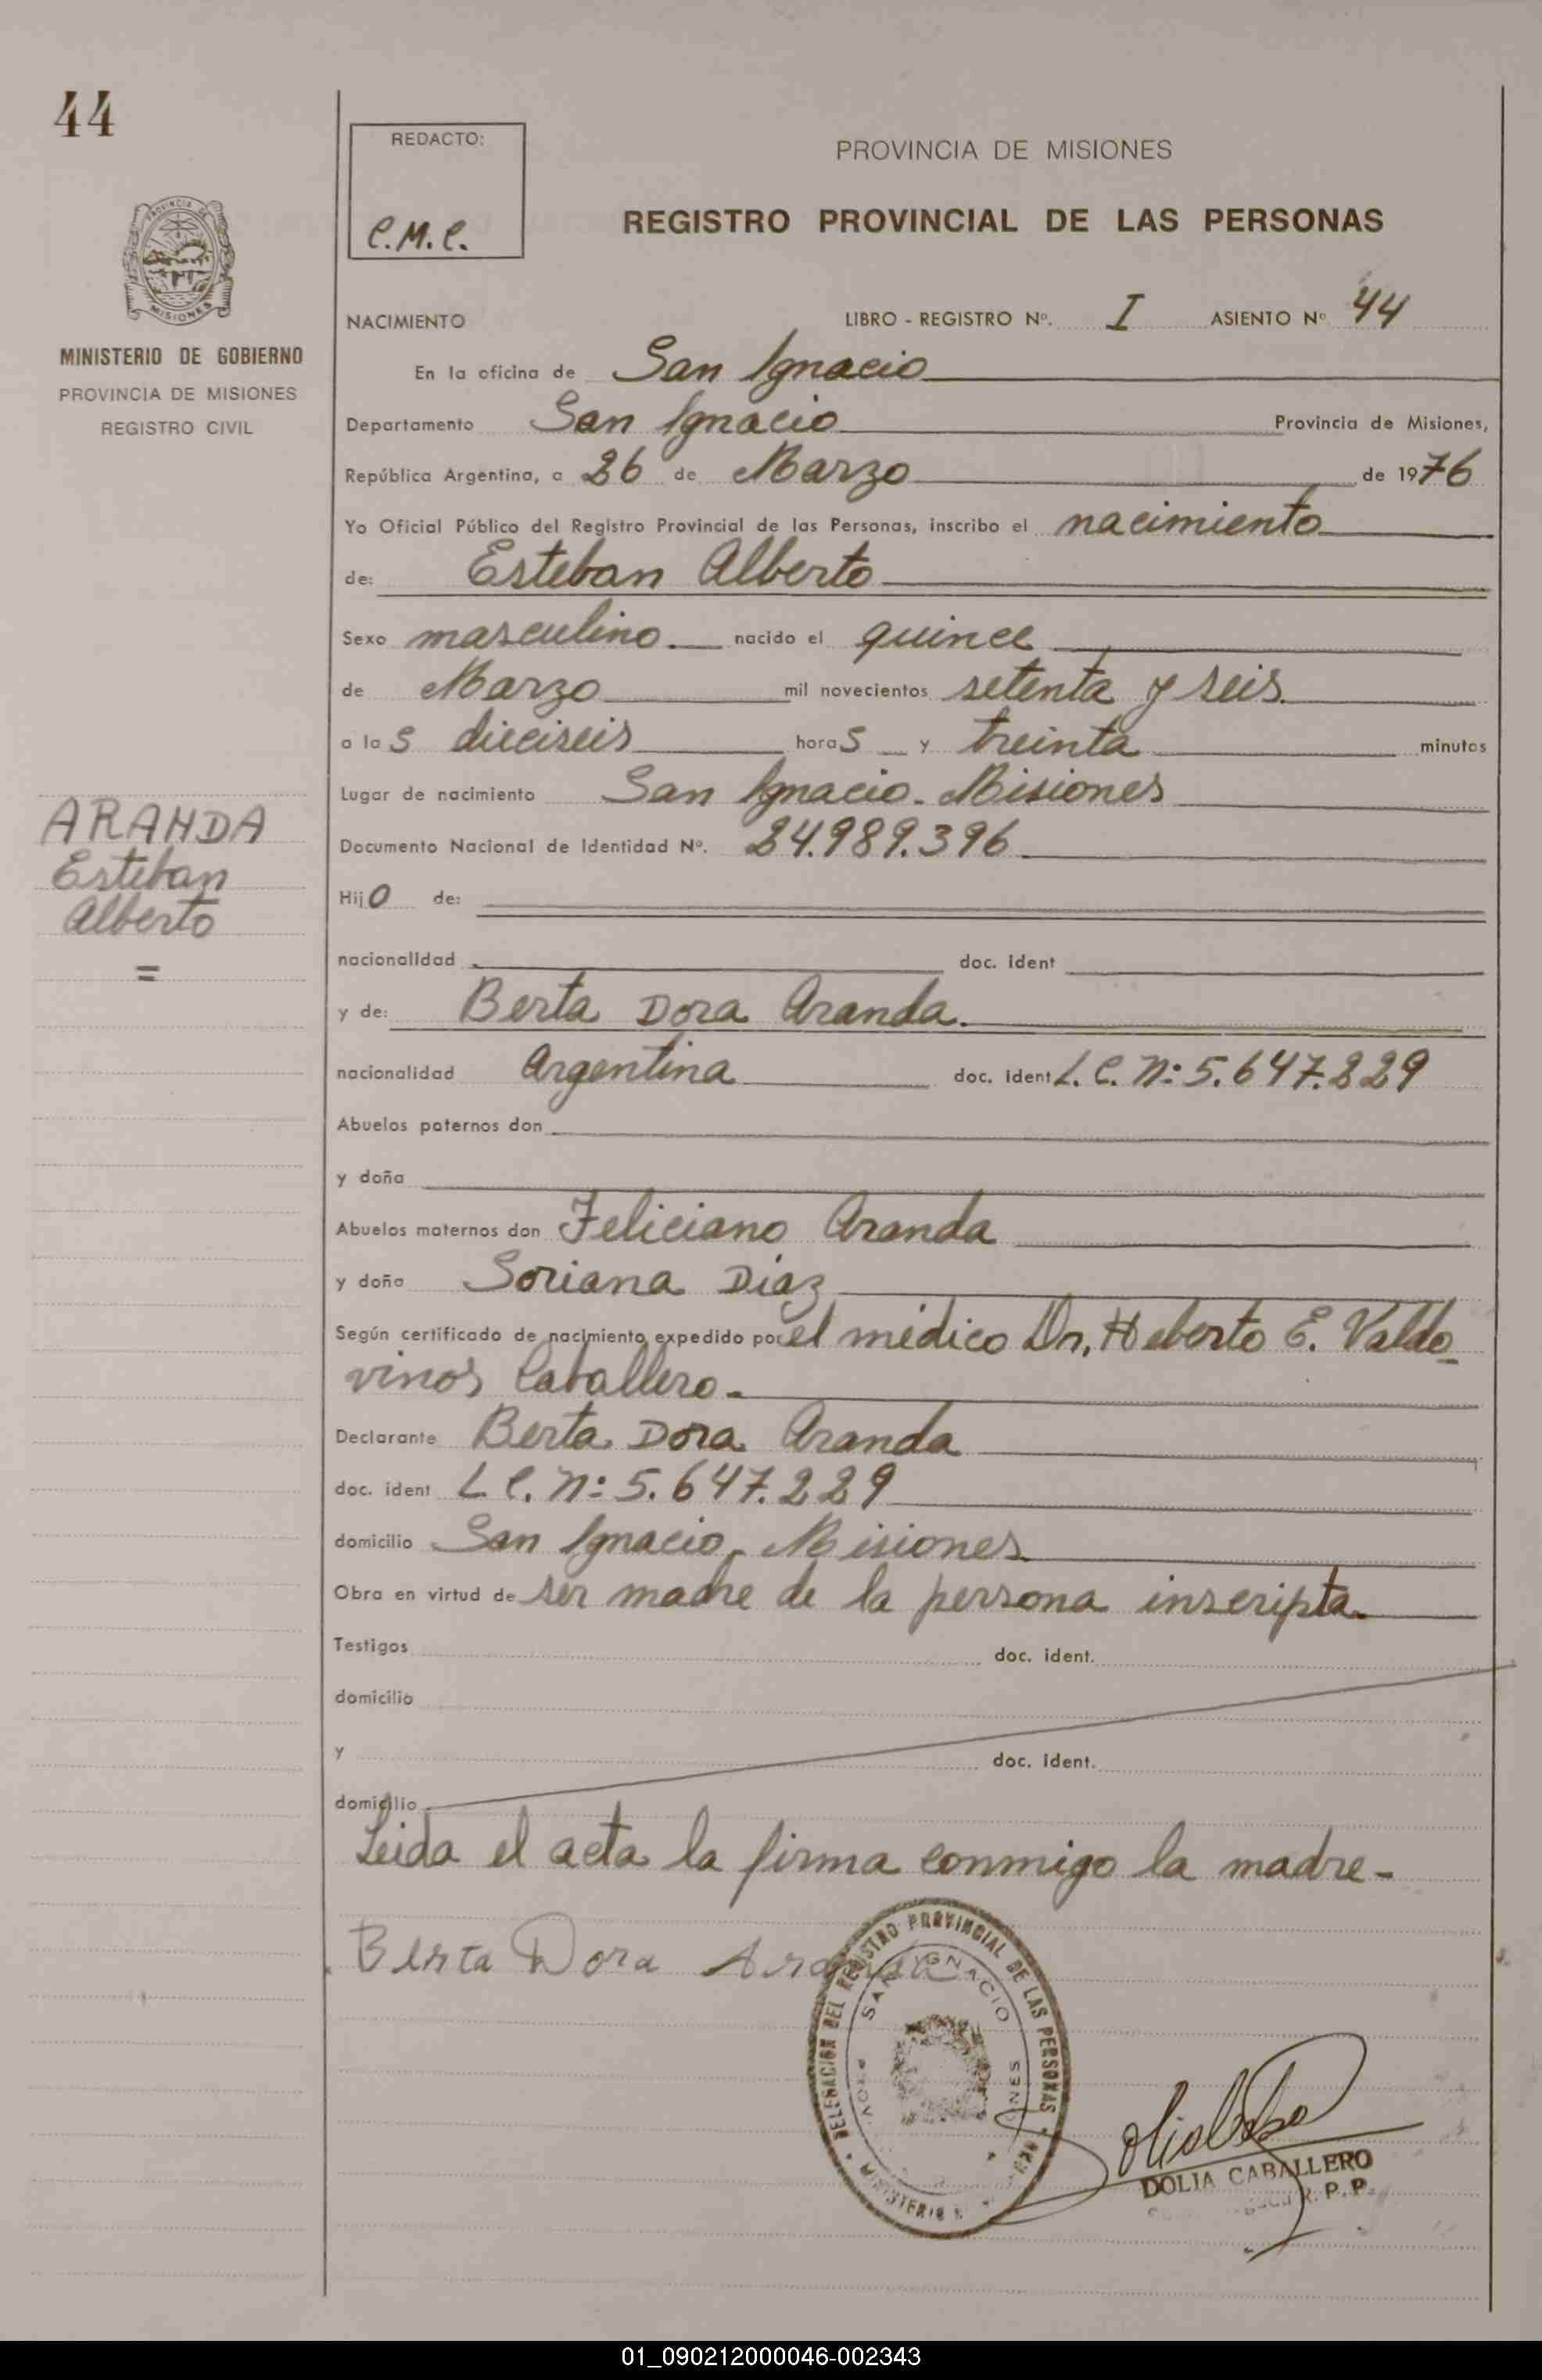 44
REDACTO:
C.M.C.
PROVINCIA DE MISIONES
REGISTRO PROVINCIAL DE LAS PERSONAS
PROVINCIA DE
MISIONES
MINISTERIO DE GOBIERNO
PROVINCIA DE MISIONES
REGISTRO CIVIL
NACIMIENTO LIBRO - REGISTRO Nº. I ASIENTO Nº 44
En la oficina de San Ignacio
Departamento San Ignacio Provincia de Misiones,
República Argentina, a 26 de Marzo de 1976
Yo Oficial Público del Registro Provincial de las Personas, inscribo el nacimiento
de: Esteban Alberto
Sexo masculino nacido el quince
de Marzo mil novecientos setenta y seis
a las dieciseis horas y treinta minutos
Lugar de nacimiento San Ignacio - Misiones
Documento Nacional de Identidad Nº. 24.989.396
ARANDA
Esteban
Alberto
=
Hijo de:
nacionalidad doc. ident
y de: Berta Dora Aranda.
nacionalidad Argentina doc. ident L.C. n: 5.647.229
Abuelos paternos don
y doña
Abuelos maternos don Feliciano Aranda
y doña Soriana Diaz
Según certificado de nacimiento expedido por el médico Dr. Heberto E. Valdo
vinos Caballero.
Declarante Berta Dora Aranda
doc. ident L C. n: 5.647.229
domicilio San Ignacio - Misiones
Obra en virtud de ser madre de la persona inscripta.
Testigos doc. ident.
domicilio
y doc. ident.
domicilio
Leida el acta la firma conmigo la madre-
Berta Dora Aranda
DELEGACION DEL REGISTRO PROVINCIAL DE LAS PERSONAS
SAN IGNACIO
DOLIA CABALLERO
R.P.P.
01_090212000046-002343